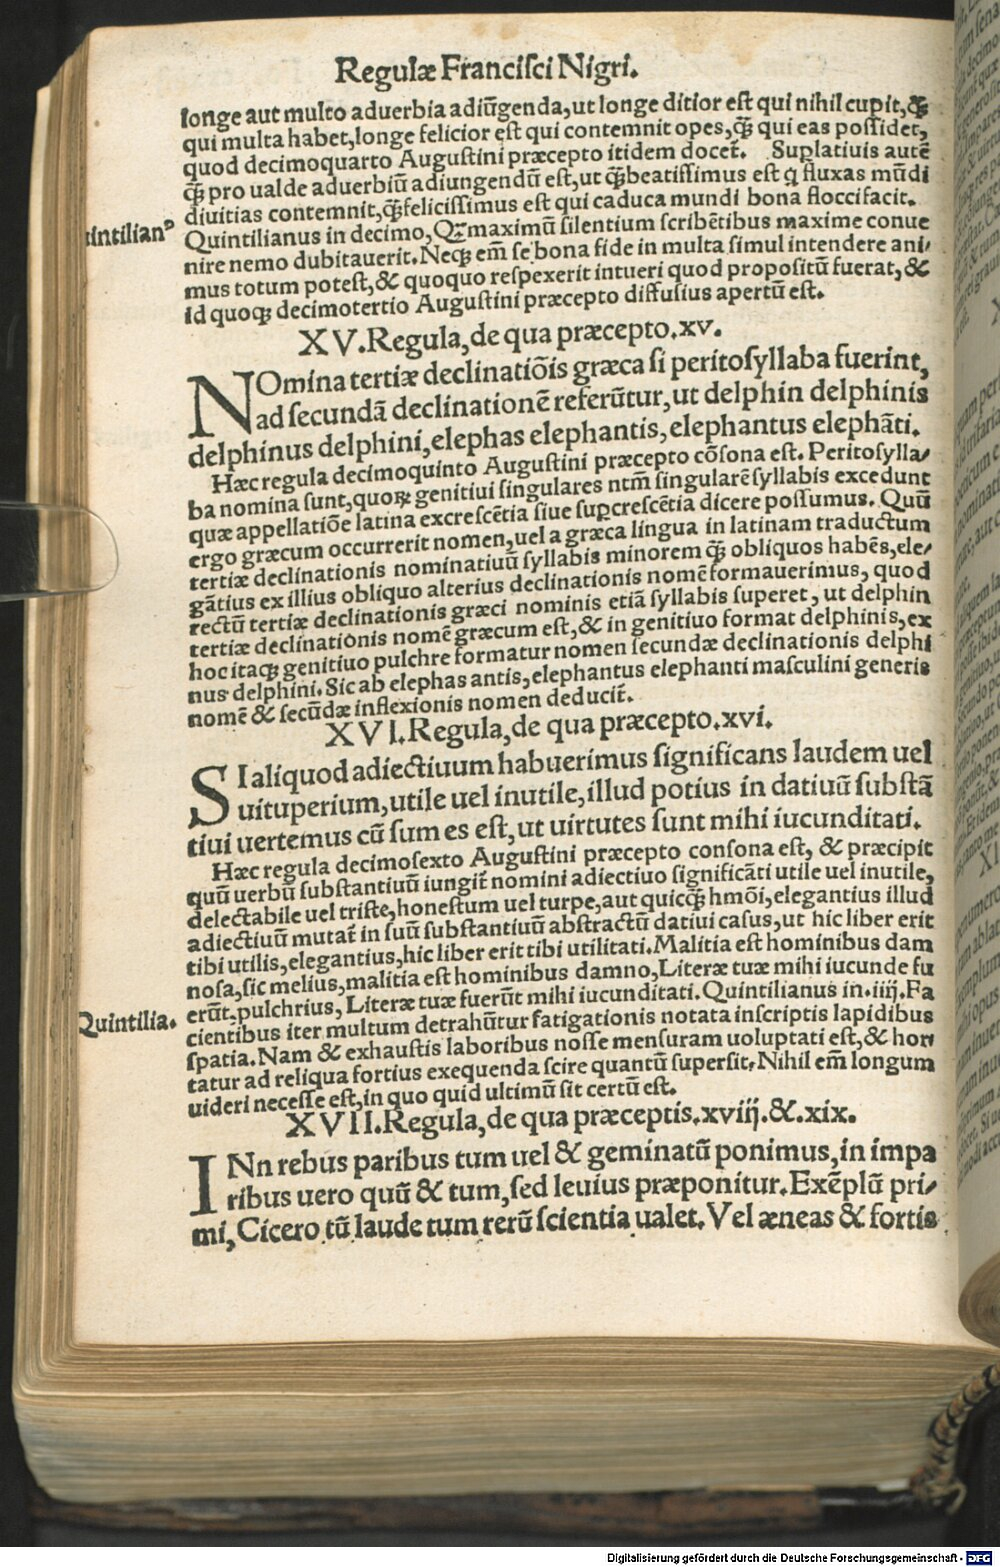 Regulæ Franciſci Nigri.
longe aut multo aduerbia adiūgenda, ut longe ditior eſt qui nihil cupit, &
qui multa habet, longe felicior eſt qui contemnit opes, q̃ꝫ qui eas poſſidet,
quod decimoquarto Auguſtini præcepto itidem docet̃. Suꝑlatiuis autē
q̃ꝫ pro ualde aduerbiū adiungendū eſt, ut q̃ꝫbeatiſſimus eſt q̣ fluxas mūdi
diuitias contemnit, q̃ꝫfeliciſſimus eſt qui caduca mundi bona floccifacit.
intilianꝰ
Quintilianus in decimo, Qꝫmaximū ſilentium ſcribētibus maxime conue
nire nemo dubitauerit. Neqꝫ em̄ ſe bona fide in multa ſimul intendere ani/
mus totum poteſt, & quoquo reſpexerit intueri quod propoſitū fuerat, &
id quoqꝫ decimotertio Auguſtini præcepto diffuſius apertū eſt.
XV. Regula, de qua præcepto. xv.
NOmina tertiæ declinatiōis græca ſi peritoſyllaba fuerint,
ad ſecundā declinationē referūtur, ut delphin delphinis
delphinus delphini, elephas elephantis, elephantus elephāti.
Hæc regula decimoquinto Auguſtini præcepto cōſona eſt. Peritoſylla/
ba nomina ſunt, quoꝝ genitiui ſingulares ntm̄ ſingularē ſyllabis excedunt
quæ appellatiōe latina excreſcētia ſiue ſuꝑcreſcētia dicere poſſumus. Quū
ergo græcum occurrerit nomen, uel a græca lingua in latinam traductum
tertiæ declinationis nominatiuū ſyllabis minorem q̃ꝫ obliquos habēs, ele/
gātius ex illius obliquo alterius declinationis nomē formauerimus, quod
rectū tertiæ declinationis græci nominis etiā ſyllabis ſuperet, ut delphin
tertiæ declinationis nomē græcum eſt, & in genitiuo format delphinis, ex
hoc itaqꝫ genitiuo pulchre formatur nomen ſecundæ declinationis delphi
nus delphini. Sic ab elephas antis, elephantus elephanti maſculini generis
nomē & ſecūdæ inflexionis nomen deducit̃.
XVI. Regula, de qua præcepto. xvi.
SI aliquod adiectiuum habuerimus ſignificans laudem uel
uituperium, utile uel inutile, illud potius in datiuū ſubſtā
tiui uertemus cū ſum es eſt, ut uirtutes ſunt mihi iucunditati.
Hæc regula decimoſexto Auguſtini præcepto conſona eſt, & præcipit
quū uerbū ſubſtantiuū iungit̃ nomini adiectiuo ſignificāti utile uel inutile,
delectabile uel triſte, honeſtum uel turpe, aut quicq̃ꝫ hmōi, elegantius illud
adiectiuū mutat̃ in ſuū ſubſtantiuū abſtractū datiui caſus, ut hic liber erit
tibi utilis, elegantius, hic liber erit tibi utilitati. Malitia eſt hominibus dam
noſa, ſic melius, malitia eſt hominibus damno, Literæ tuæ mihi iucunde fu
erūt, pulchrius, Literæ tuæ fuerūt mihi iucunditati. Quintilianus in. iiij. Fa
Quintilia.
cientibus iter multum detrahūtur fatigationis notata inſcriptis lapidibus
ſpatia. Nam & exhauſtis laboribus noſſe menſuram uoluptati eſt, & hor/
tatur ad reliqua fortius exequenda ſcire quantū ſuperſit. Nihil em̄ longum
uideri neceſſe eſt, in quo quid ultimū ſit certū eſt.
XVII. Regula, de qua præceptis. xviij. &. xix.
INn rebus paribus tum uel & geminatū ponimus, in impa
ribus uero quū & tum, ſed leuius præponitur. Exēplū pri/
mi, Cicero tū laude tum rerū ſcientia ualet. Vel æneas & fortis
Digitalisierung gefördert durch die Deutsche Forschungsgemeinschaft - DFG